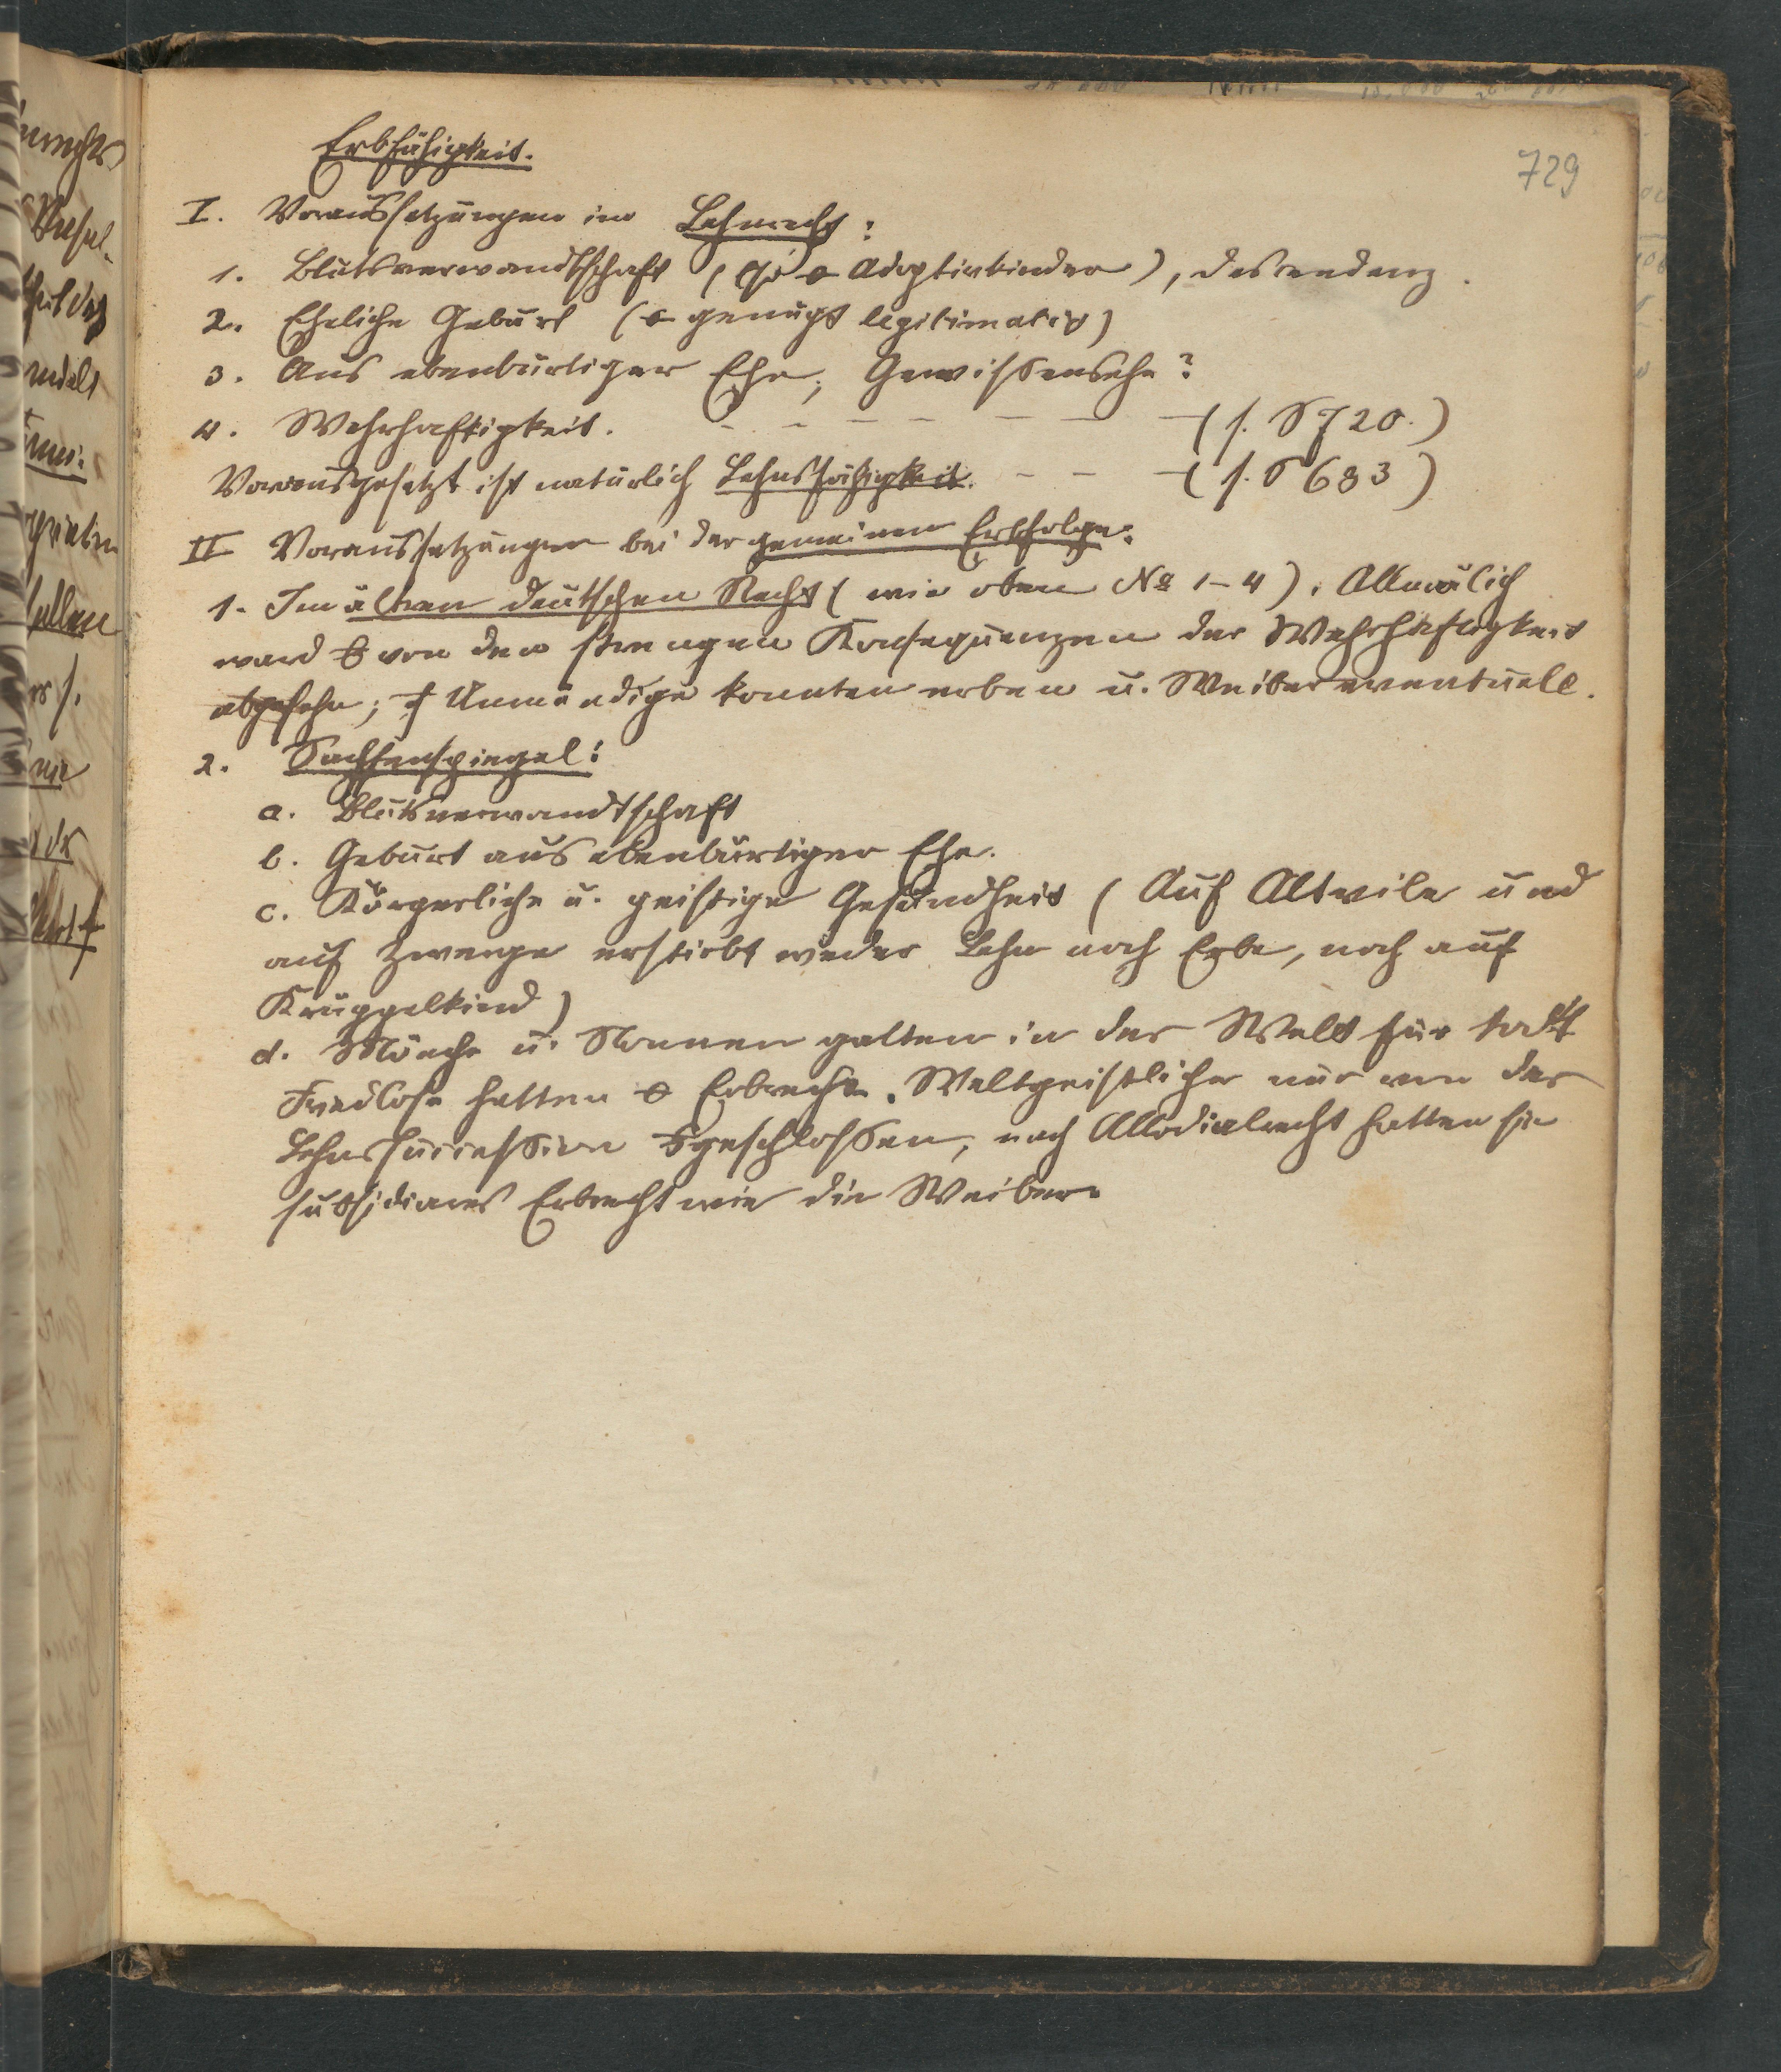 729
Erbfähigkeit.
I. Voraussetzungen im Lehnrecht:
1. Blutsverwandtschaft ( Adoptivkinder), Descendenz.
2. Eheliche Geburt ( genügt legitimatio)
3. Aus ebenbürtiger Ehe, Gewissensehe?
4. Wehrhaftigkeit. - - - - - - - (s. S 720.)
Vorausgesetzt ist natürlich Lehnsfähigkeit. - - - (s. S 683)
II Voraussetzungen bei der gemeinen Erbfolge:
1. Im älteren deutschen Recht (wie oben No 1-4). Allmälich
ward von den strengen Konsequenzen der Wehrhaftigkeit
abgesehn; Unmündige konnten erben u. Weiber eventuell.
2. Sachsenspiegel:
a. Blutsverwandtschaft
b. Geburt aus ebenbürtiger Ehe.
c. Körperliche u. geistige Gesundheit (Auf Altvile und
auf Zwerge erstirbt weder Lehn noch Erbe, noch auf
Krüppelkind)
d. Mönche u. Nonnen galten in der Welt für todt
Friedlose hatten Erbrecht. Weltgeistliche nur von der
Lehnssuccession geschlossen, nach Allodialrecht hatten sie
subsidiares Erbrecht wie die Weiber.